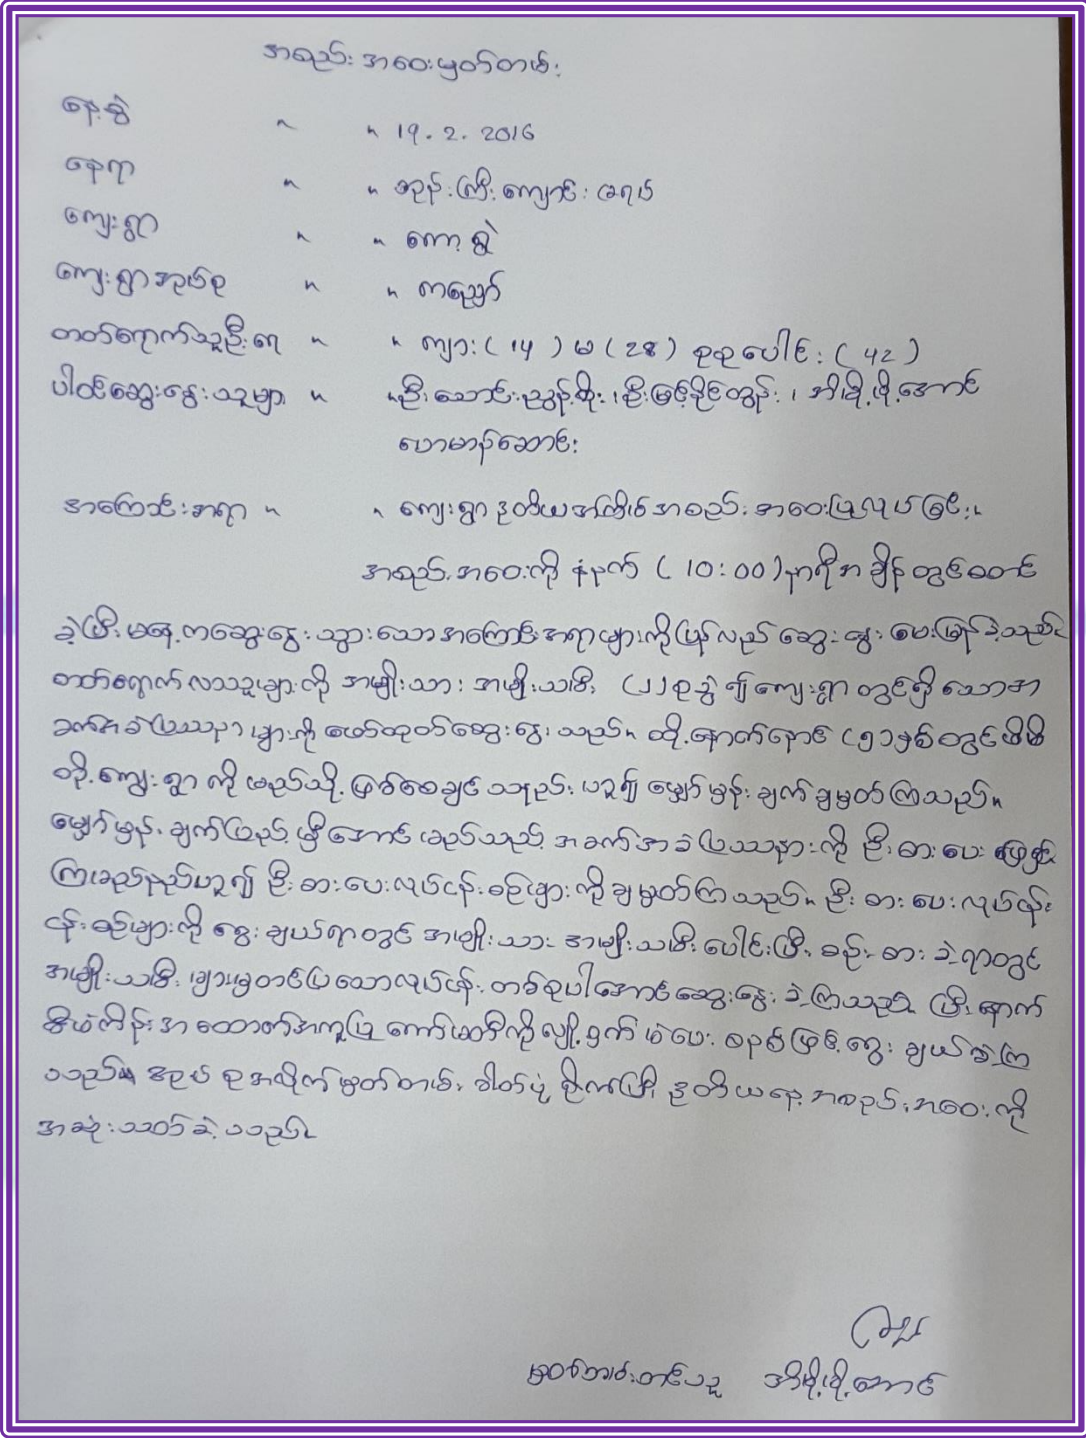 အစည်းအဝေးမှတ်တမ်း
နေ့စွဲ - ။ 19.2.2016
နေရာ - ။ ဘုန်းကြီးကျောင်းဓမ္မာရုံ
ကျေးရွာ - ။ ကော့ရွဲ
ကျေးရွာအုပ်စု - ။ ကညော်
တတ်ရောက်သူဦးရေ - ။ ကျား (14) မ (28) စုစုပေါင်း (42)
ပါဝင်ဆွေးနွေးသူများ - ။ ဦးသောင်းညွန့်စိုး ၊ ဦးမြင့်ခိုင်တွန်း ၊ အိအိစိုးအောင်
ဟေမာန်ဆောင်း
အကြောင်းအရာ - ။ ကျေးရွာ ဒုတိယအကြိမ် အစည်းအဝေးပြုလုပ်ခြင်း။
အစည်းအဝေးကို နံနက် (10:00) နာရီအချိန်တွင်စတင်
ခဲ့ပြီး မနေ့ကဆွေးနွေးသွားသော အကြောင်းအရာများကို ပြန်လည် ဆွေးနွေး မေးမြန်းခဲ့သည်။
တတ်ရောက်လာသူများကို အမျိုးသား အမျိုးသမီး (၂) စုခွဲ၍ ကျေးရွာတွင်ရှိသောအ
ခက်အခဲပြဿနာများကို ဖော်ထုတ်ဆွေးနွေးသည်။ ထို့နောက်နောင် (၅) နှစ်တွင် မိမိ
တို့ကျေးရွာကို မည်သို့ဖြစ်စေချင်သည်ဟူ၍ မျှော်မှန်းချက်ချမှတ်ကြသည်။
မျှော်မှန်းချက်ပြည့်မှီအောင် မည်သည့် အခက်အခဲပြဿနာကို ဦးစားပေး ဖြေရှင်း
ကြမည်နည်းဟူ၍ ဦးစားပေးလုပ်ငန်းစဉ်များကို ချမှတ်ကြသည်။ ဦးစားပေးလုပ်ငန်း
ငန်းစဉ်များကို ရွေးချယ်ရာတွင် အမျိုးသား အမျိုးသမီးပေါင်းပြီး စဉ်းစားခဲ့ရာတွင်
အမျိုးသမီးများမှတင်ပြသောလုပ်ငန်းတစ်ခုပါအောင်ဆွေးနွေးခဲ့ကြသည်။ ပြီးနောက်
စီမံကိန်းအထောက်အကူပြုကော်မတီကို လျှို့ဝှက်မဲပေးစနစ်ဖြင့် ရွေးချယ်ခဲ့ကြ
သည်။ အုပ်စုအလိုက်မှတ်တမ်းဓါတ်ပုံရိုက်ပြီး ဒုတိယနေ့အစည်းအဝေးကို
အဆုံးသတ်ခဲ့သည်။
မှတ်တမ်းတင်သူ အိအိစိုးအောင်